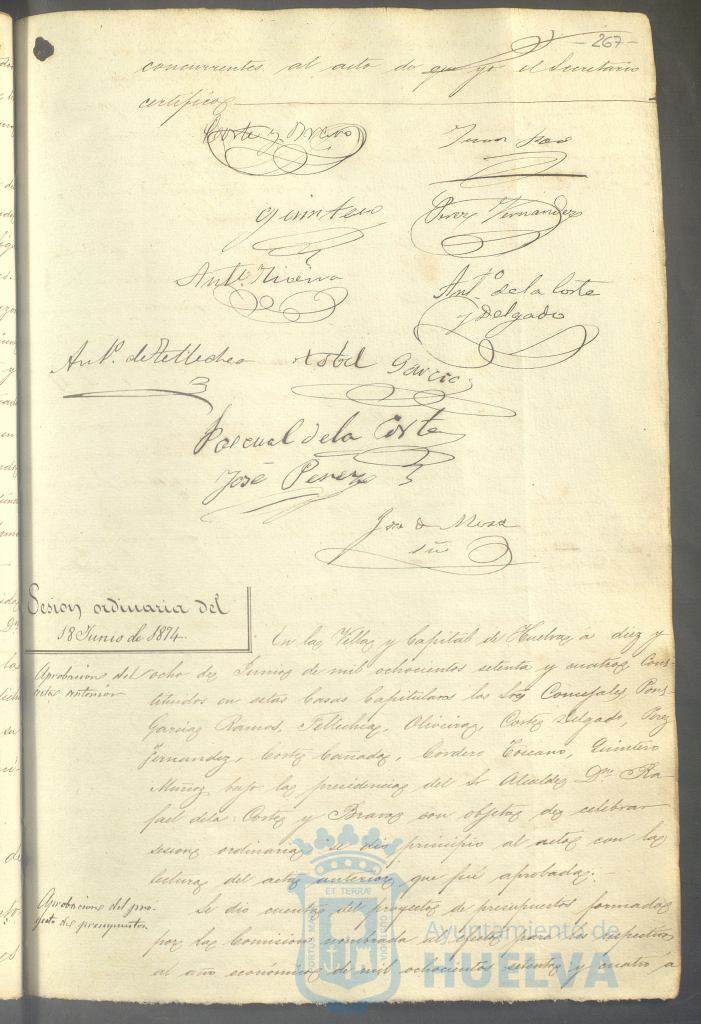 -267-
concurrentes al acto de que yo el Secretario
certifico
Corte y Bravo
Quintero
Perez Fernandez
Ant.º Oliveira
Ant.º de la Corte
y Delgado
Ant.º de Tellechea
Garcia
Pascual de la Corte
José Perez
Sesion ordinaria del
18 Junio de 1874.
En la Villa y Capital de Huelva a diez y
Aprobacion del
acta anterior
ocho de Junio de mil ochocientos setenta y cuatro Cons-
tituidos en estas Casas Capitulares los Sres Concejales Pons
Garcia Ramos, Tellechea, Oliveira, Corte Delgado, Perez
Fernandez, Cortes Cañada, Cordero Toscano, Quintero
Muñoz bajo la presidencia del Sr Alcalde Dn Ra-
fael de la Corte y Bravo con objeto de celebrar
sesion ordinaria se dio principio al acto con la
lectura del acta anterior que fué aprobada.
Aprobacion del pro-
yecto de presupuestos
Se dio cuenta del proyecto de presupuestos formado
por la Comision nombrada al efecto para el respectivo
al año económico de mil ochocientos setenta y cuatro á
PORTUS MARIS
ET TERRÆ
CUSTODIA
Ayuntamiento de
HUELVA